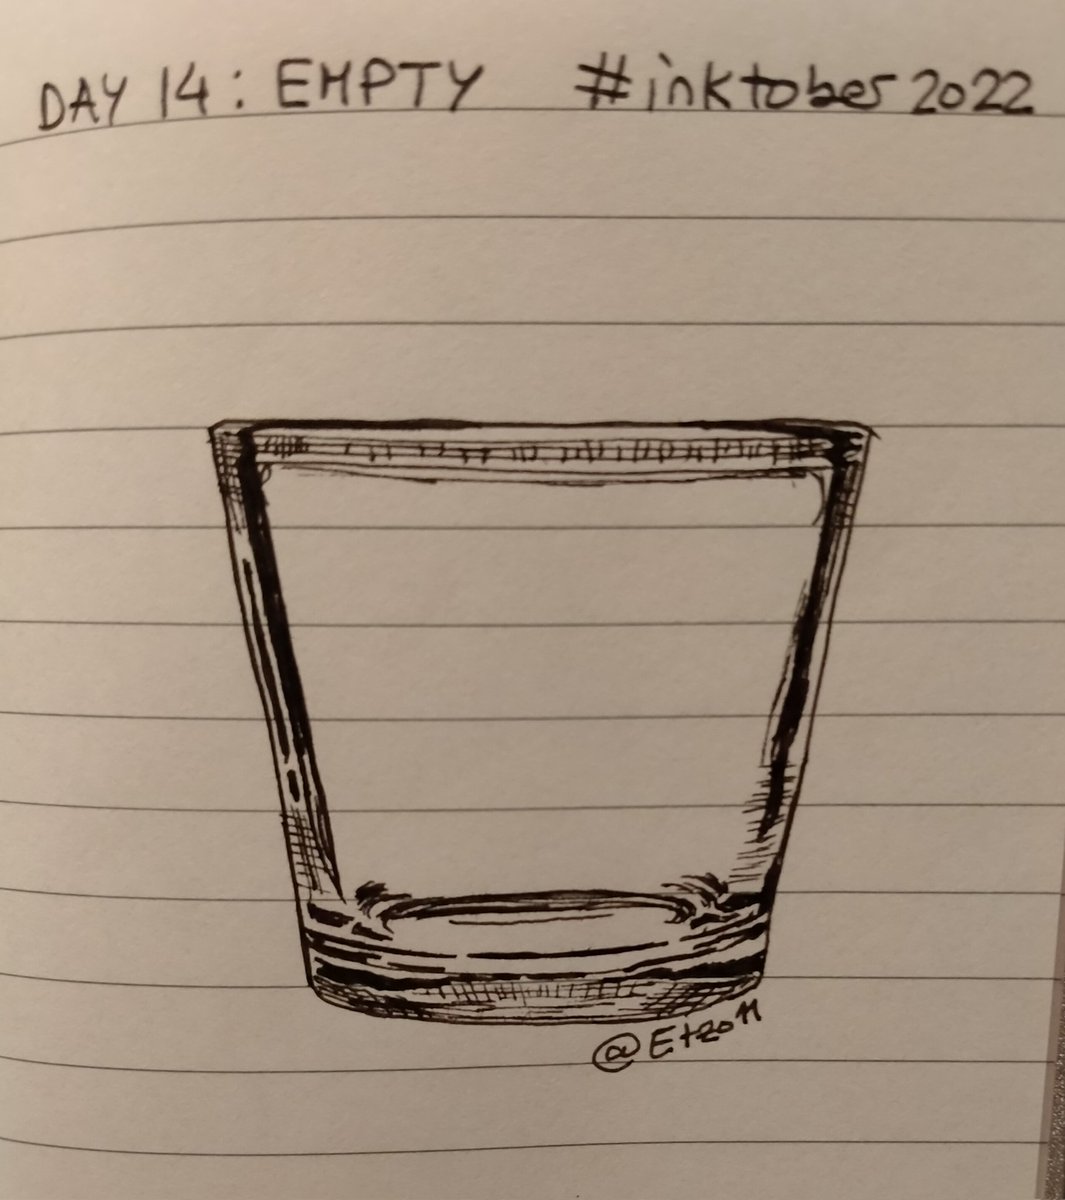 DAY 14: EMPTY #inktober2022
@Etzo11